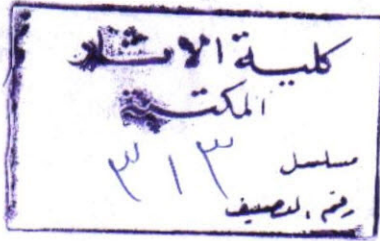 كلية الاثار
المكتبة
مسلسل ٣١٣
رقم التصنيف